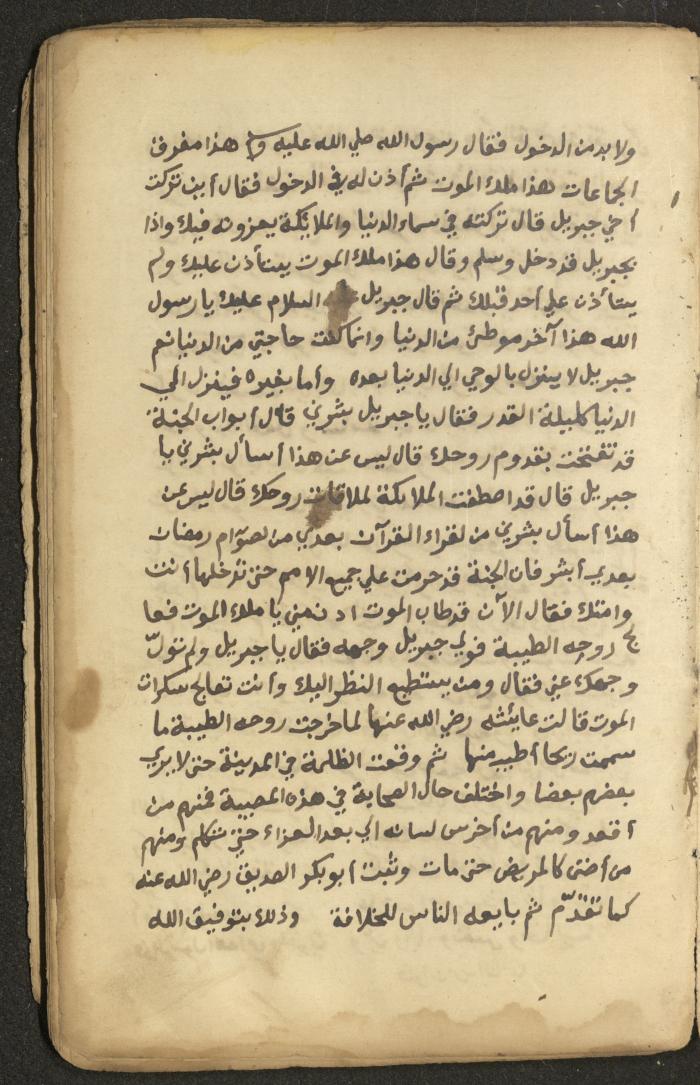 ولا بد من الدخول فقال رسول الله صلي الله عليه وسلم هذا مفرق
الجماعات هذا ملك الموت ثم أذن له في الدخول فقال أين تركت
أخي جبريل قال تركته في سماء الدنيا والملائكة يعزونه فيك واذا
بجبريل قد دخل وسلم وقال هذا ملك الموت يستأذن عليك ولم
يستأذن علي أحد قبلك ثم قال جبريل السلام عليك يا رسول
الله هذا آخر موطئ من الدنيا وانما كنت حاجتي من الدنيا نعم
جبريل لا ينزل بالوحي الي الدنيا بعده وأما بغيره فينزل الي
الدنيا كليلة القدر فقال يا جبريل بشرني قال أبواب الجنة
قد تفتحت بقدوم روحك قال ليس عن هذا أسأل بشرني يا
جبريل قال قد اصطفت الملائكة لملاقات روحك قال ليس عن
هذا أسأل بشرني من لقراء القرآن بعدي من لصوّام رمضان
بعدي أبشر فان الجنة قد حرمت علي جميع الامم حتي تدخلها أنت
وامتك فقال الآن قد طاب الموت ادن مني يا ملك الموت فعا
لج روحه الطيبة فولي جبريل وجهه فقال يا جبريل ولم تولّ
وجهك عني فقال ومن يستطيع النظر اليك وأنت تعالج سكرات
الموت قالت عايشه رضي الله عنها لما خرجت روحه الطيبة ما
سممت ريحا أطيب منها ثم وقعت الظلمة في المدينة حتي لا يري
بعضهم بعضا واختلف حال الصحابة في هذه المصيبة فمنهم من
أقعد ومنهم من أخرس لسانه الي بعد العزاء حتي تكلم ومنهم
من أضني كالمريض حتي مات وثبت أبو بكر الصديق رضي الله عنه
كما تقدّم ثم بايعه الناس للخلافة وذلك بتوفيق الله